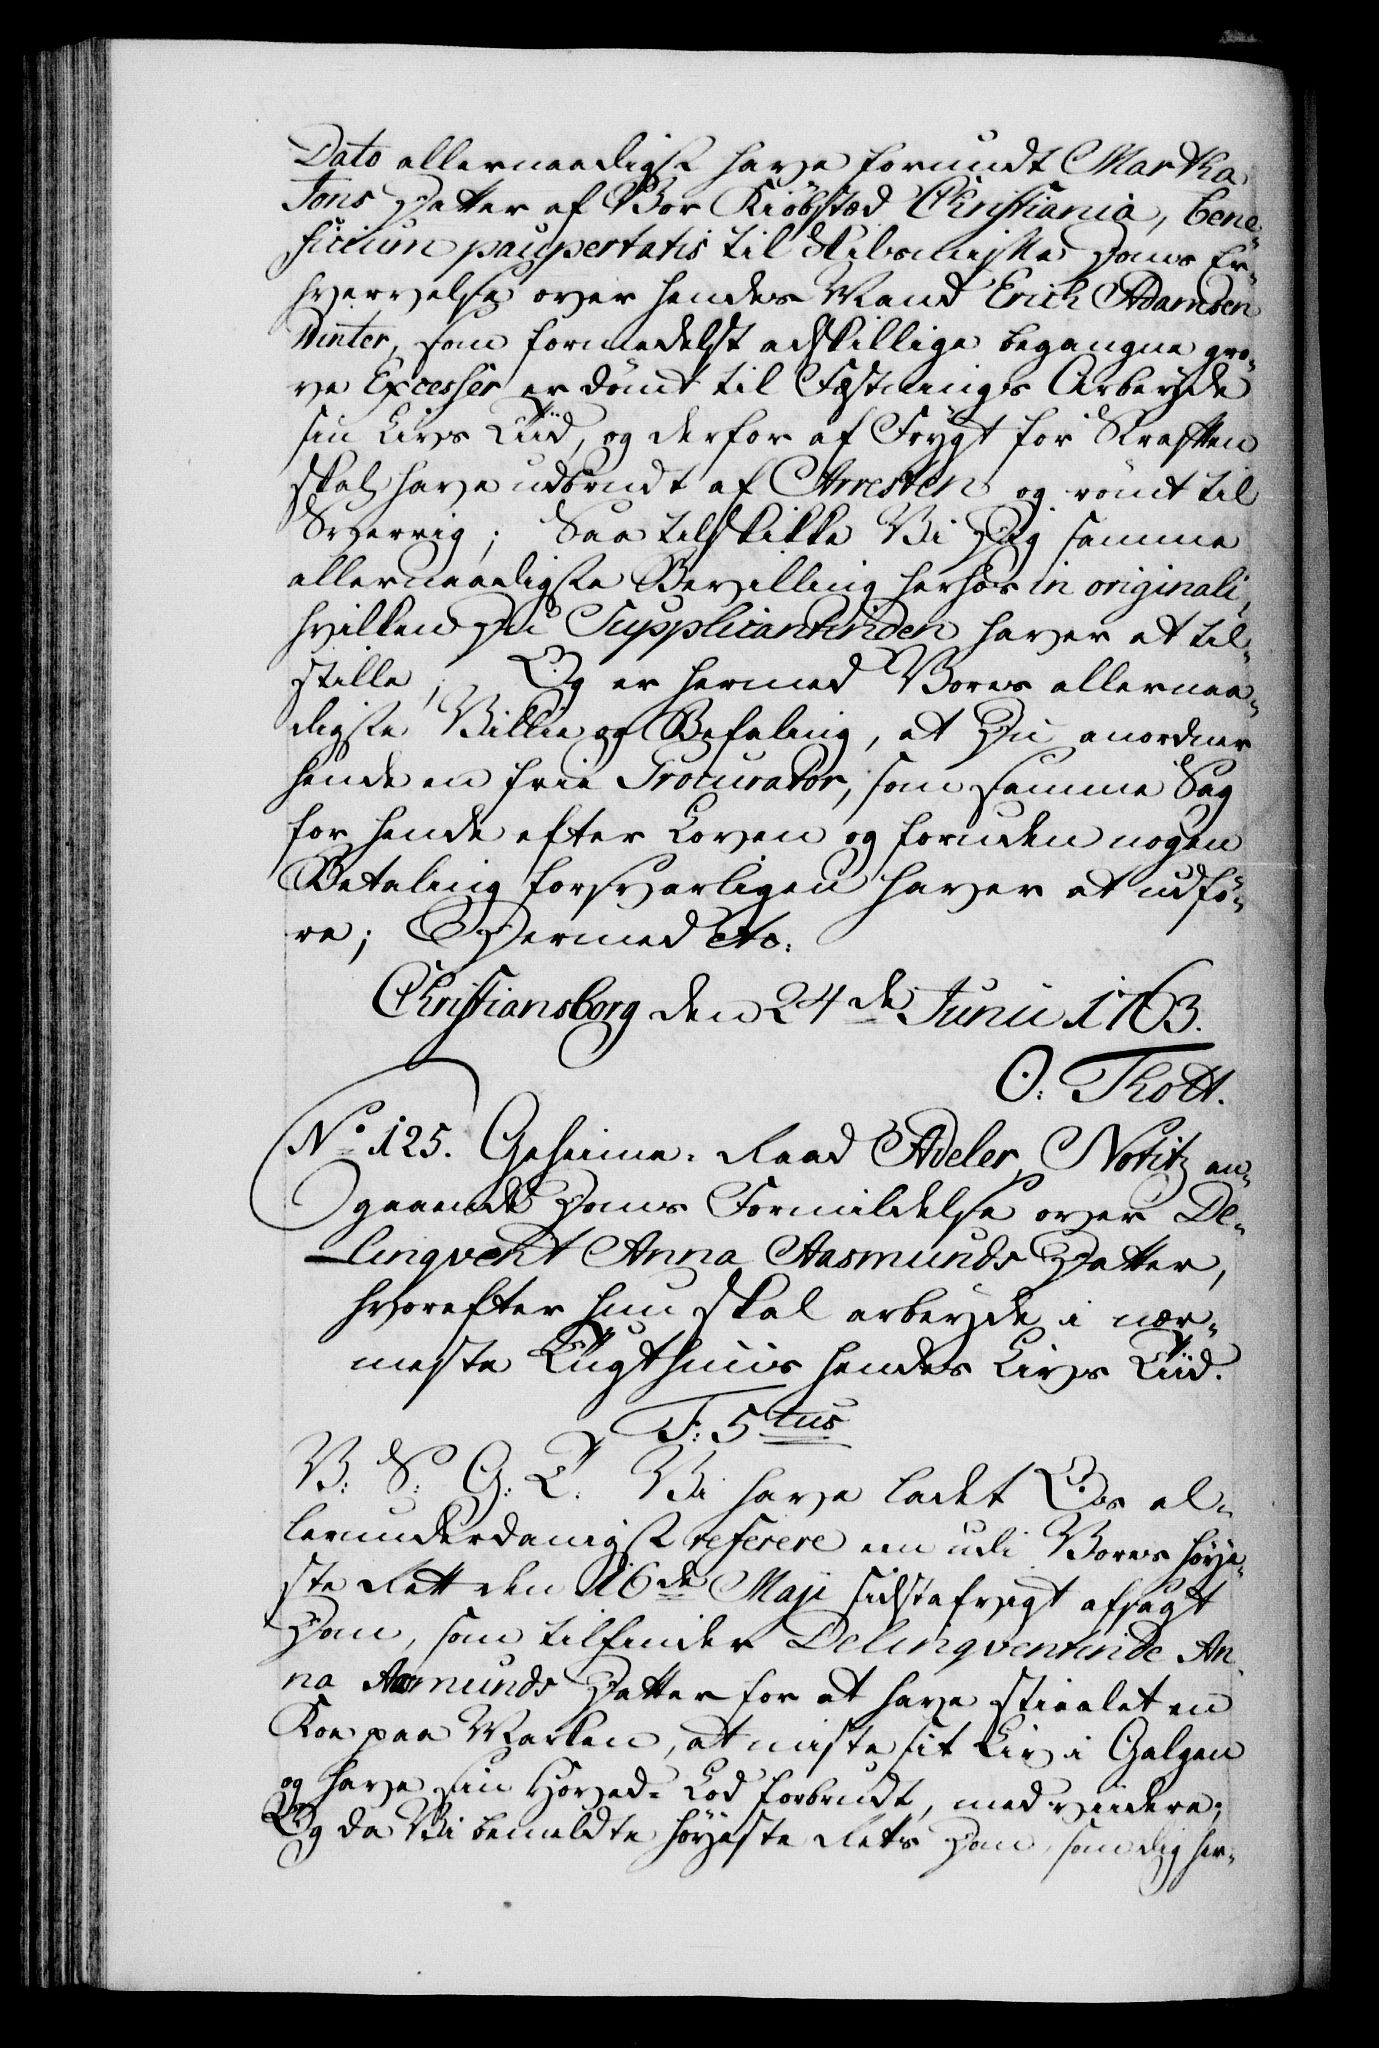 Dato allernaadigst have forundt Martha
Jons Datter af Vor Kiöbstæd Christiania, bene-
ficium paupertatis til Skilsmisse Doms Er-
hvervelse over hendes Mand Erich Adamsen
Winter, som formedelst adskillige begangne gro-
ve Excesser er dömt til Fæstnings Arbeyde
sin Livs Tiid, og derfor af Frygt for Straffen
skal have udbrudt af Arresten og römt til
Sverrig; Saa tilskikke Vi Dig samme
allernaadigste Bevilling herhos in originali,
hvilken Du Supplicantinden haver at til-
stille; Og er hermed Vores allernaa-
digste Villie og Befaling, at Du anordner
hende en frie Procurator, som samme Sag
for hende efter Loven og foruden nogen
Betaling forsvarligen haver at udfö-
re; Dermed etc:
Christiansborg den 24de Junii 1763.
O: Thott.
No 125. Geheime-Raad Adeler Notitz an-
gaaende Doms Formildelse over De-
linqvent Anna Aasmunds Datter,
hvorefter hun skal arbeyde i nær-
meste Tugthuus hendes Livs Tiid.
F: 5tus
V: S: G: T. Vi have ladet Os al-
lerunderdanigst referere een udi Vores höye-
ste Rett den 16de Maji sidstafvigt afsagt
Dom, som tilfinder Delinqventinde An-
na Aasmunds Datter for at have stiaalet en
Koe paa Marken, at miste sit Liv i Galgen
og have sin Hoved-Lod forbrudt, med viidere;
Og da Vi bemeldte höyeste Rets Dom, som dig her-